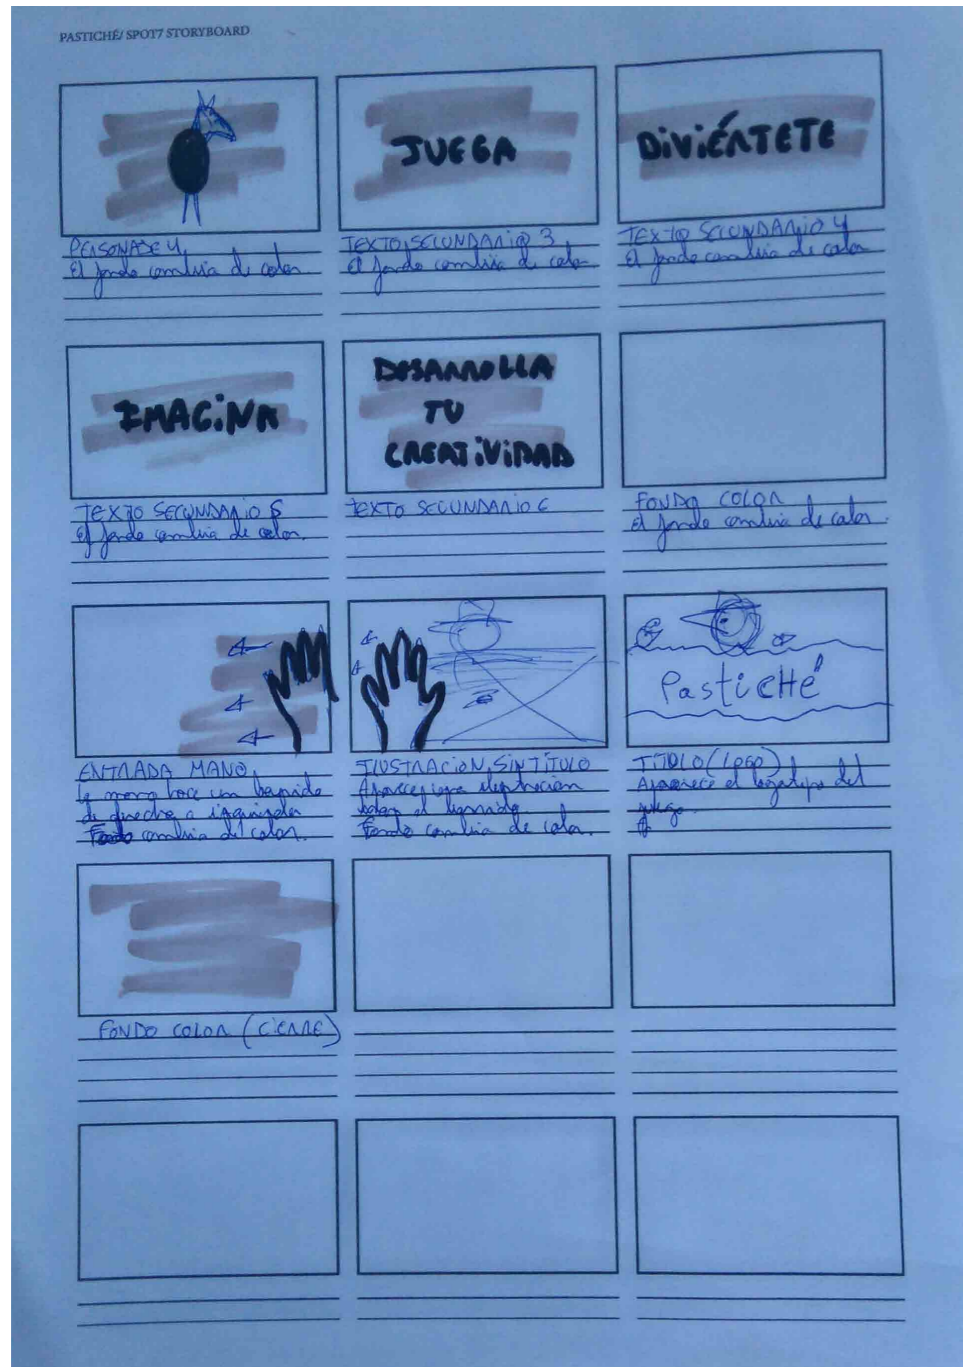 PASTICHÉ/ SPOT7 STORYBOARD
PERSONAJE 4
El fondo cambia de color
JUEGA
TEXTO SECUNDARIO 3
El fondo cambia de color
DIVIÉRTETE
TEXTO SECUNDARIO 4
El fondo cambia de color
IMAGINA
TEXTO SECUNDARIO 5
El fondo cambia de color.
DESARROLLA
TU
CREATIVIDAD
TEXTO SECUNDARIO 6
FONDO COLOR
El fondo cambia de color.
ENTRADA MANO
La mano hace un barrido
de derecha a izquierda
Fondo cambia de color.
ILUSTRACIÓN SIN TÍTULO
Aparece una ilustración
el barrido
Fondo cambia de color.
Pastiché
TÍTULO (LOGO)
Aparece el logotipo del
juego.
FONDO COLOR (CIERRE)